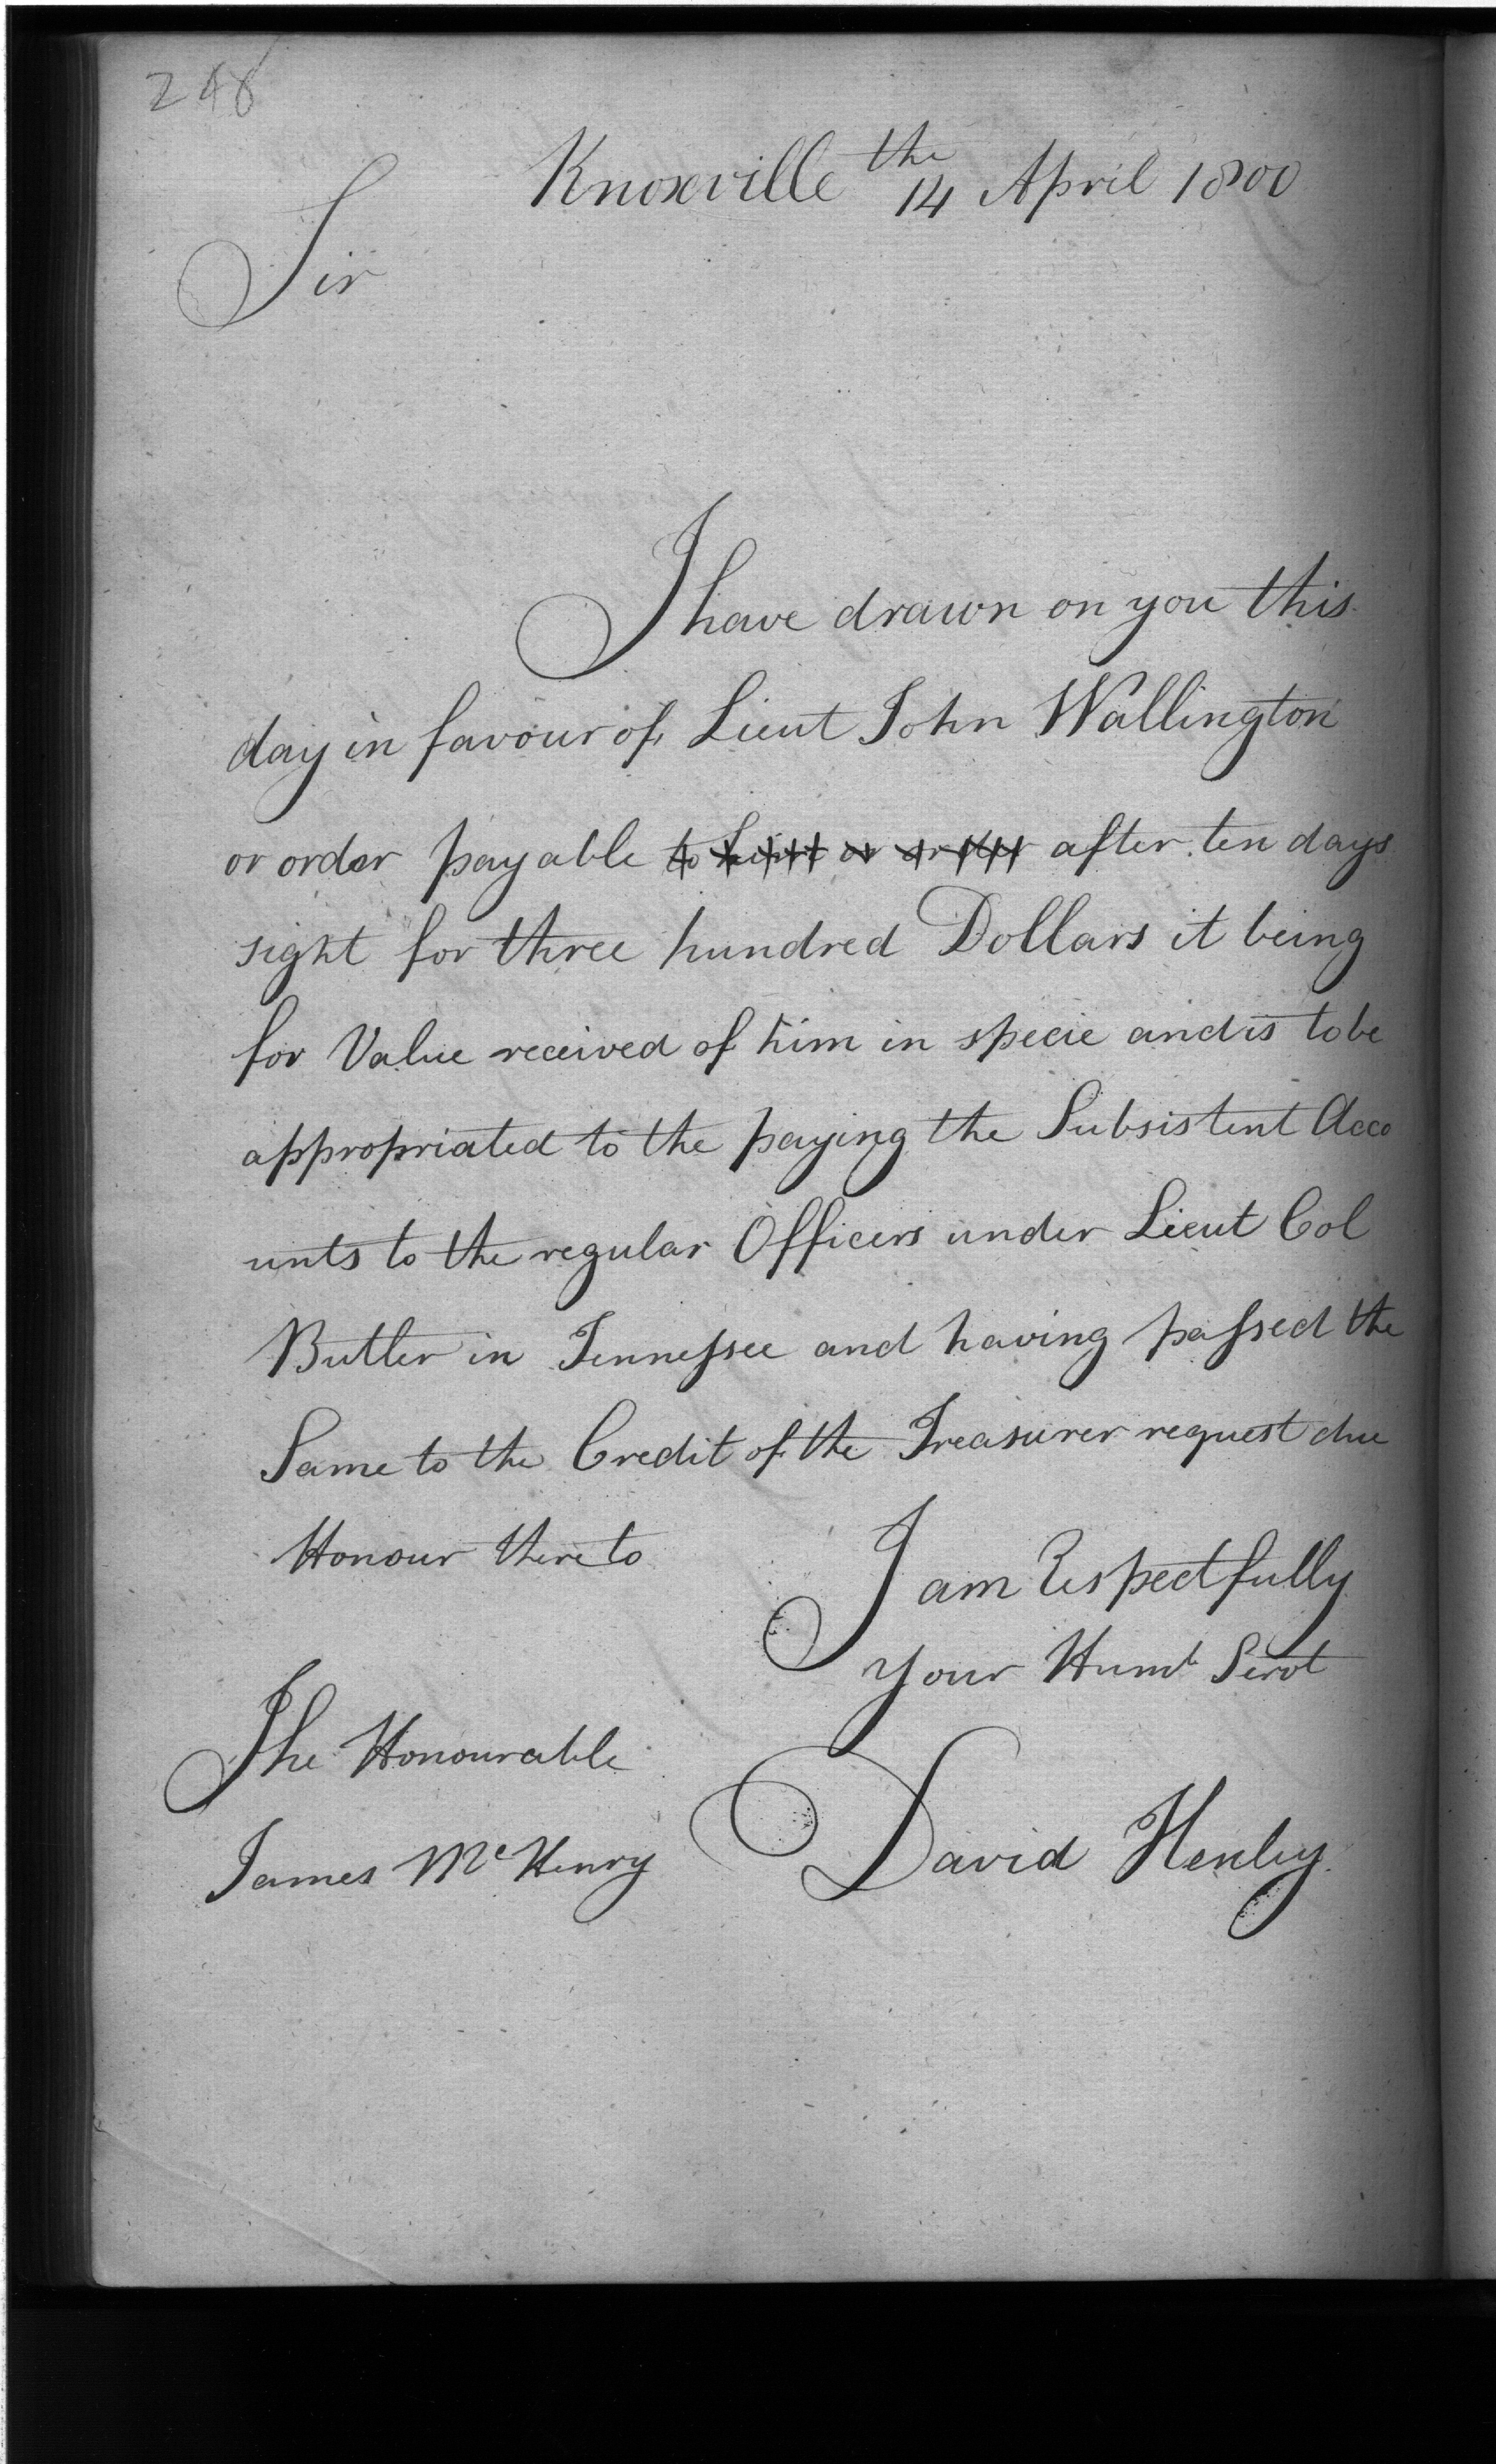 248
Knoxville the 14 April 1800
Sir
I have drawn on you this
day in favour of Lieut John Wallington
or order payable to or order after ten days
sight for three hundred Dollars it being
for Value received of him in specie and is to be
appropriated to the paying the Subsistent Acco
unts to the regular Officers under Lieut Col
Butler in Tennessee and having passed the
Same to the Credit of the Treasurer request due
Honour thereto
I am Respectfully
your Humt Servt
The Honourable
James McHenry
David Henley